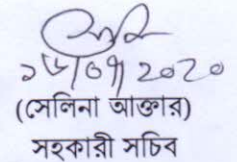 ১৬/০৭/2020
(সেলিনা আক্তার)
সহকারী সচিব